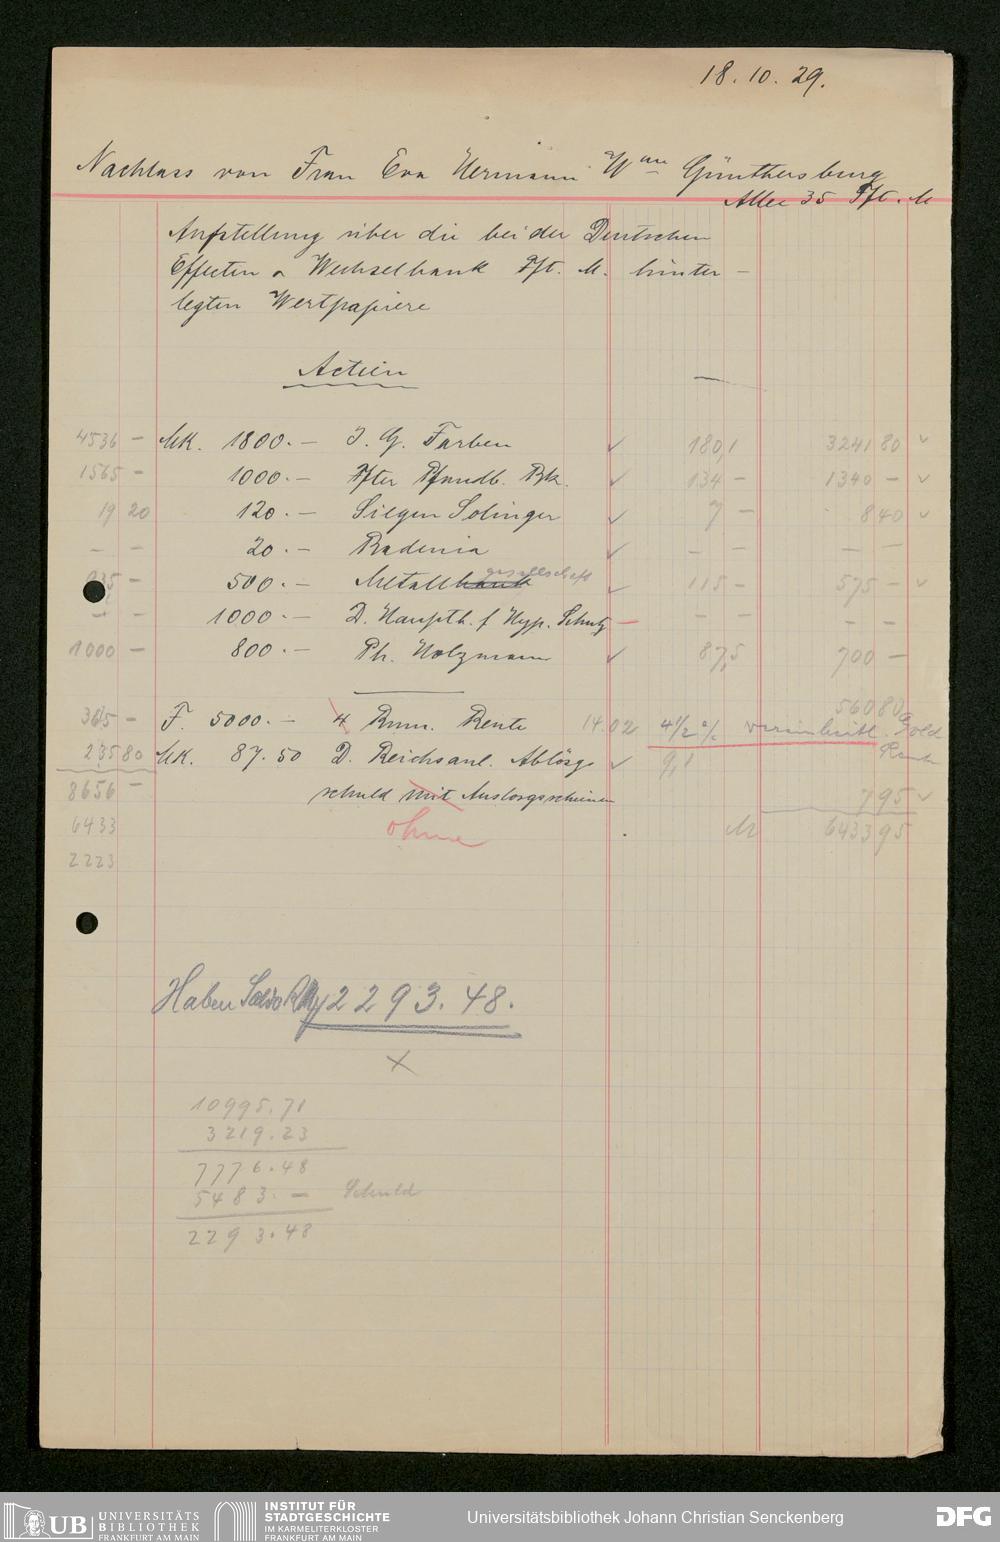 18. 10. 29.
Nachlass von Frau Eva Hermann Wwe Günthersburg
Allee 35 Fft. M
Aufstellung über die bei der Deutschen
Effecten & Wechselbank Fft. M. hinter-
legten Wertpapiere
Actien
4536 - Mk. 1800.- I. G. Farben ✓ 180,1 3241 80 ✓
1565 - 1000.- Ffter Pfandb. Bk. ✓ 134 - 1340 - ✓
19 20 120.- Siegen Solinger ✓ 7 - 8 40 ✓
- - 20.- Badenia ✓ - - - -
35 - 500.- Metallbank gesellschaft ✓ 115 - 575 - ✓
- - 1000.- D. Hauptb. f Hyp. Schutz - - - - -
1000 - 800.- Ph. Holzmann ✓ 87,5 700 -
365 - F. 5000.- 4 Rum. Rente 14.02 4 1/2 % vereinheitl. Gold 560 80
Rente
235 80 Mk. 87.50 D. Reichsanl. Ablösgs ✓ 9,1
8656 - schuld mit Auslosgsscheinen 7 95 ✓
6433 ohne M 6433 95
2223
Haben Saldo RM 2293.48.
x
10995.71
3219.23
7776.48
5483.- Schuld
2293.48
UB UNIVERSITÄTS
BIBLIOTHEK
FRANKFURT AM MAIN
INSTITUT FÜR
STADTGESCHICHTE
IM KARMELITERKLOSTER
FRANKFURT AM MAIN
Universitätsbibliothek Johann Christian Senckenberg
DFG